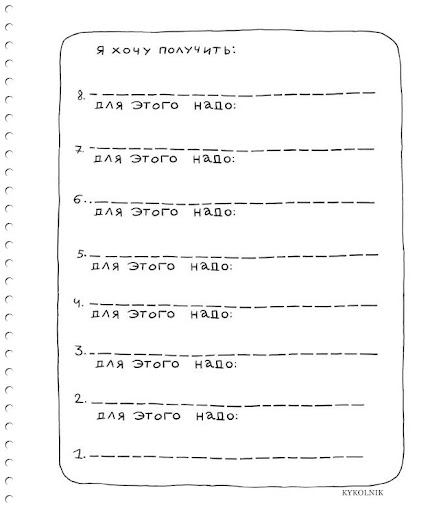 Я хочу получить:
8.
для этого надо:
7.
для этого надо:
6.
для этого надо:
5.
для этого надо:
4.
для этого надо:
3.
для этого надо:
2.
для этого надо:
1.
KYKOLNIK